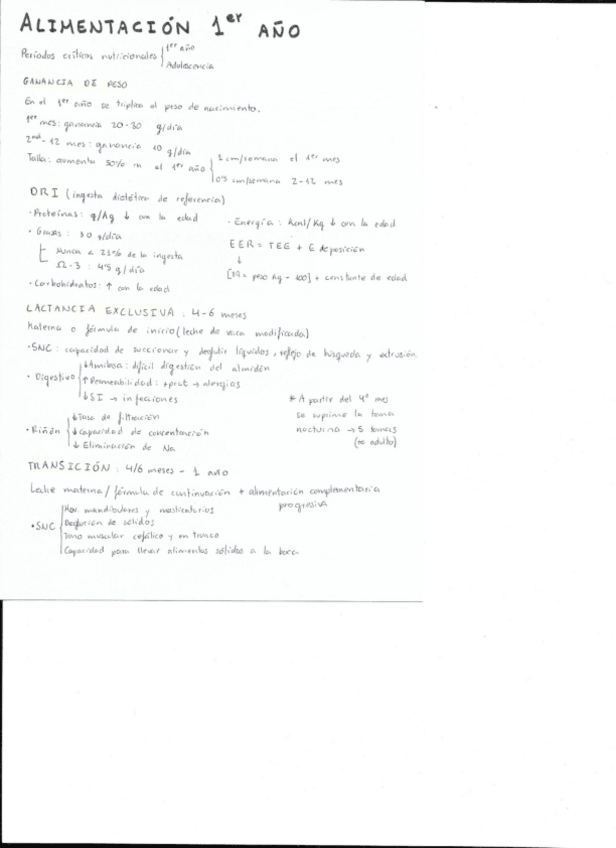 ALIMENTACIÓN 1er AÑO
Períodos críticos nutricionales { 1er año
Adolescencia
GANANCIA DE PESO
En el 1er año se triplica el peso de nacimiento.
1er mes: ganancia 20-30 g/día
2nd-12 mes: ganancia 10 g/día
Talla: aumenta 50% en el 1er año { 1 cm/semana el 1er mes
0'5 cm/semana 2-12 mes
DRI (ingesta dietética de referencia)
· Proteínas: g/kg ↓ con la edad
· Grasas: 30 g/día
Nunca < 25% de la ingesta
Ω-3: 4'5 g/día
· Carbohidratos: ↑ con la edad
· Energía: kcal/kg ↓ con la edad
EER = TEE + E deposición
↓
[89 × peso kg - 100] + constante de edad
LACTANCIA EXCLUSIVA: 4-6 meses
Materna o fórmula de inicio (leche de vaca modificada)
· SNC: capacidad de succionar y deglutir líquidos, reflejo de búsqueda y extrusión.
· Digestivo { ↓ Amilasa: difícil digestión del almidón
↑ Permeabilidad: + prot → alergias
↓ SI → infecciones
· Riñón { ↓ Tasa de filtración
↓ Capacidad de concentración
↓ Eliminación de Na
* A partir del 4º mes
se suprime la toma
nocturna → 5 tomas
(≈ adulto)
TRANSICIÓN: 4/6 meses - 1 año
Leche materna / fórmula de continuación + alimentación complementaria
progresiva
· SNC { Mov. mandibulares y masticatorios
Deglución de sólidos
Tono muscular cefálico y en tronco
Capacidad para llevar alimentos sólidos a la boca